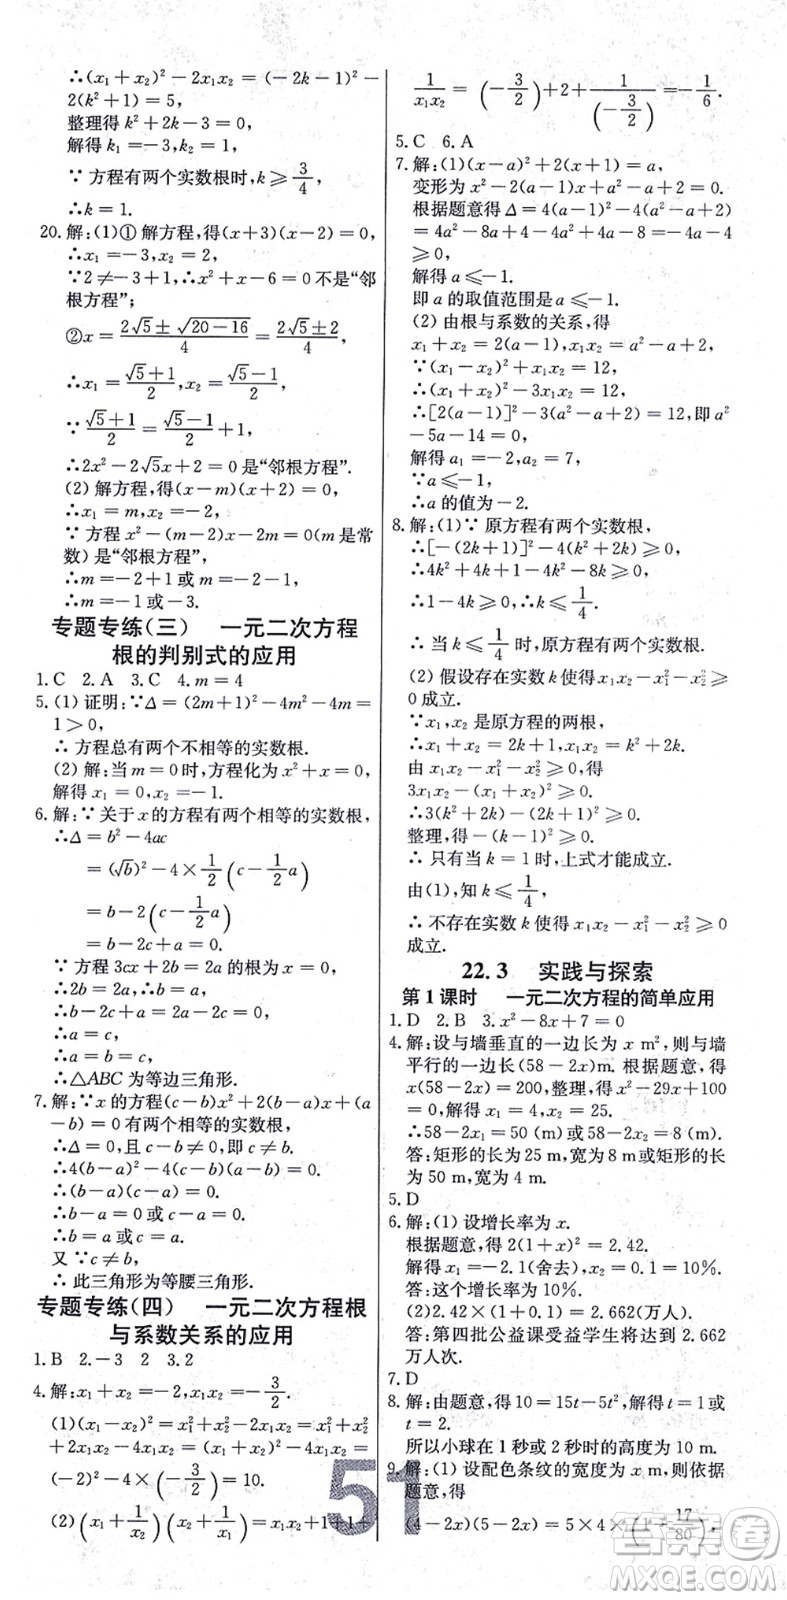 ∴(x₁+x₂)²-2x₁x₂=(-2k+1)²-
2(k²+1)=5,
整理得 k²+4k-3=0,
解得 k₁=-3,k₂=1.
∵ 方程有两个实数根时,k⩾3/4,
∴k=1.
20. 解:(1)① 解方程,得(x+3)(x-2)=0,
∴x₁=-3,x₂=2,
∵2≠-3+1,∴x²+x-6=0 不是“邻
根方程”;
②x=(2√5±√(20-16))/4=(2√5±2)/4,
∴x₁=(√5+1)/2,x₂=(√5-1)/2,
∵(√5+1)/2=(√5-1)/2+1,
∴2x²-2√5x+2=0 是“邻根方程”.
(2) 解方程,得(x-m)(x+2)=0,
∴x₁=m,x₂=-2,
∵ 方程 x²-(m-2)x-2m=0(m 是常
数) 是“邻根方程”,
∴m=-2+1 或 m=-2-1,
∴m=-1 或 m=-3.
专题专练(三) 一元二次方程
根的判别式的应用
1. C 2. A 3. C 4. m=4
5. (1) 证明:∵Δ=(2m+1)²-4m²-4m=
1>0,
∴ 方程总有两个不相等的实数根.
(2) 解:当 m=0 时,方程化为 x²+x=0,
解得 x₁=0,x₂=-1.
6. 解:∵ 关于 x 的方程有两个相等的实数根,
∴Δ=b²-4ac
=(√b)²-4×1/2(c-1/2a)
=b-2(c-1/2a)
=b-2c+a=0.
∵ 方程 3cx+2b=2a 的根为 x=0,
∴2b=2a,∴b=a.
∴b-2c+a=a-2c+a=0,
∴a=c,
∴a=b=c,
∴△ABC 为等边三角形.
7. 解:∵x 的方程(c-b)x²+2(b-a)x+(a
-b)=0 有两个相等的实数根,
∴Δ=0,且 c-b≠0,即 c≠b.
∴4(b-a)²-4(c-b)(a-b)=0,
∴(b-a)(c-a)=0,
∴b-a=0 或 c-a=0,
∴b=a 或 c=a.
又 ∵c≠b,
∴ 此三角形为等腰三角形.
专题专练(四) 一元二次方程根
与系数关系的应用
1. B 2. -3 2 3. 2
4. 解:x₁+x₂=-2,x₁x₂=-3/2.
(1)(x₁-x₂)²=x₁²+x₂²-2x₁x₂=x₁²+x₂²
+2x₁x₂-4x₁x₂=(x₁+x₂)²-4x₁x₂=
(-2)²-4×(-3/2)=10.
(2)(x₁+1/x₂)(x₂+1/x₁)=x₁x₂+1+1+
1/(x₁x₂)=(-3/2)+2+1/(-3/2)=-1/6.
5. C 6. A
7. 解:(1)(x-a)²+2(x+1)=a,
变形为 x²-2(a-1)x+a²-a+2=0.
根据题意得 Δ=4(a-1)²-4(a²-a+2)=
4a²-8a+4-4a²+4a-8=-4a-4
⩾0,
解得 a⩽-1.
即 a 的取值范围是 a⩽-1.
(2) 由根与系数的关系,得
x₁+x₂=2(a-1),x₁x₂=a²-a+2,
∵x₁²+x₂²-x₁x₂=12,
∴(x₁+x₂)²-3x₁x₂=12,
∴[2(a-1)]²-3(a²-a+2)=12,即 a²
-5a-14=0,
解得 a₁=-2,a₂=7,
∵a⩽-1,
∴a 的值为-2.
8. 解:(1)∵ 原方程有两个实数根,
∴[-(2k+1)]²-4(k²+2k)⩾0,
∴4k²+4k+1-4k²-8k⩾0,
∴1-4k⩾0,∴k⩽1/4.
∴ 当 k⩽1/4 时,原方程有两个实数根.
(2) 假设存在实数 k 使得 x₁x₂-x₁²-x₂²⩾
0 成立.
∵x₁,x₂ 是原方程的两根,
∴x₁+x₂=2k+1,x₁x₂=k²+2k.
由 x₁x₂-x₁²-x₂²⩾0,得
3x₁x₂-(x₁+x₂)²⩾0.
∴3(k²+2k)-(2k+1)²⩾0,
整理,得-(k-1)²⩾0,
∴ 只有当 k=1 时,上式才能成立.
由(1),知 k⩽1/4,
∴ 不存在实数 k 使得 x₁x₂-x₁²-x₂²⩾0
成立.
22.3 实践与探索
第1课时 一元二次方程的简单应用
1. D 2. B 3. x²-8x+7=0
4. 解:设与墙垂直的一边长为 x m²,则与墙
平行的一边长(58-2x)m. 根据题意,得
x(58-2x)=200,整理,得 x²-29x+100
=0,解得 x₁=4,x₂=25.
∴58-2x₁=50 (m)或 58-2x₂=8 (m).
答:矩形的长为 25 m,宽为 8 m或矩形的长
为 50 m,宽为 4 m.
5. D
6. 解:(1) 设增长率为 x.
根据题意,得 2(1+x)²=2.42.
解得 x₁=-2.1(舍去),x₂=0.1=10%.
答:这个增长率为 10%.
(2)2.42×(1+0.1)=2.662(万人).
答:第四批公益课受益学生将达到 2.662
万人次.
7. D
8. 解:由题意,得 10=15t-5t²,解得 t=1 或
t=2.
所以小球在 1 秒或 2 秒时的高度为 10 m.
9. 解:(1) 设配色条纹的宽度为 x 米,则根据
题意,得
(4-2x)(5-2x)=5×4×(1-17/80),
51
答案圈
MXQE.COM